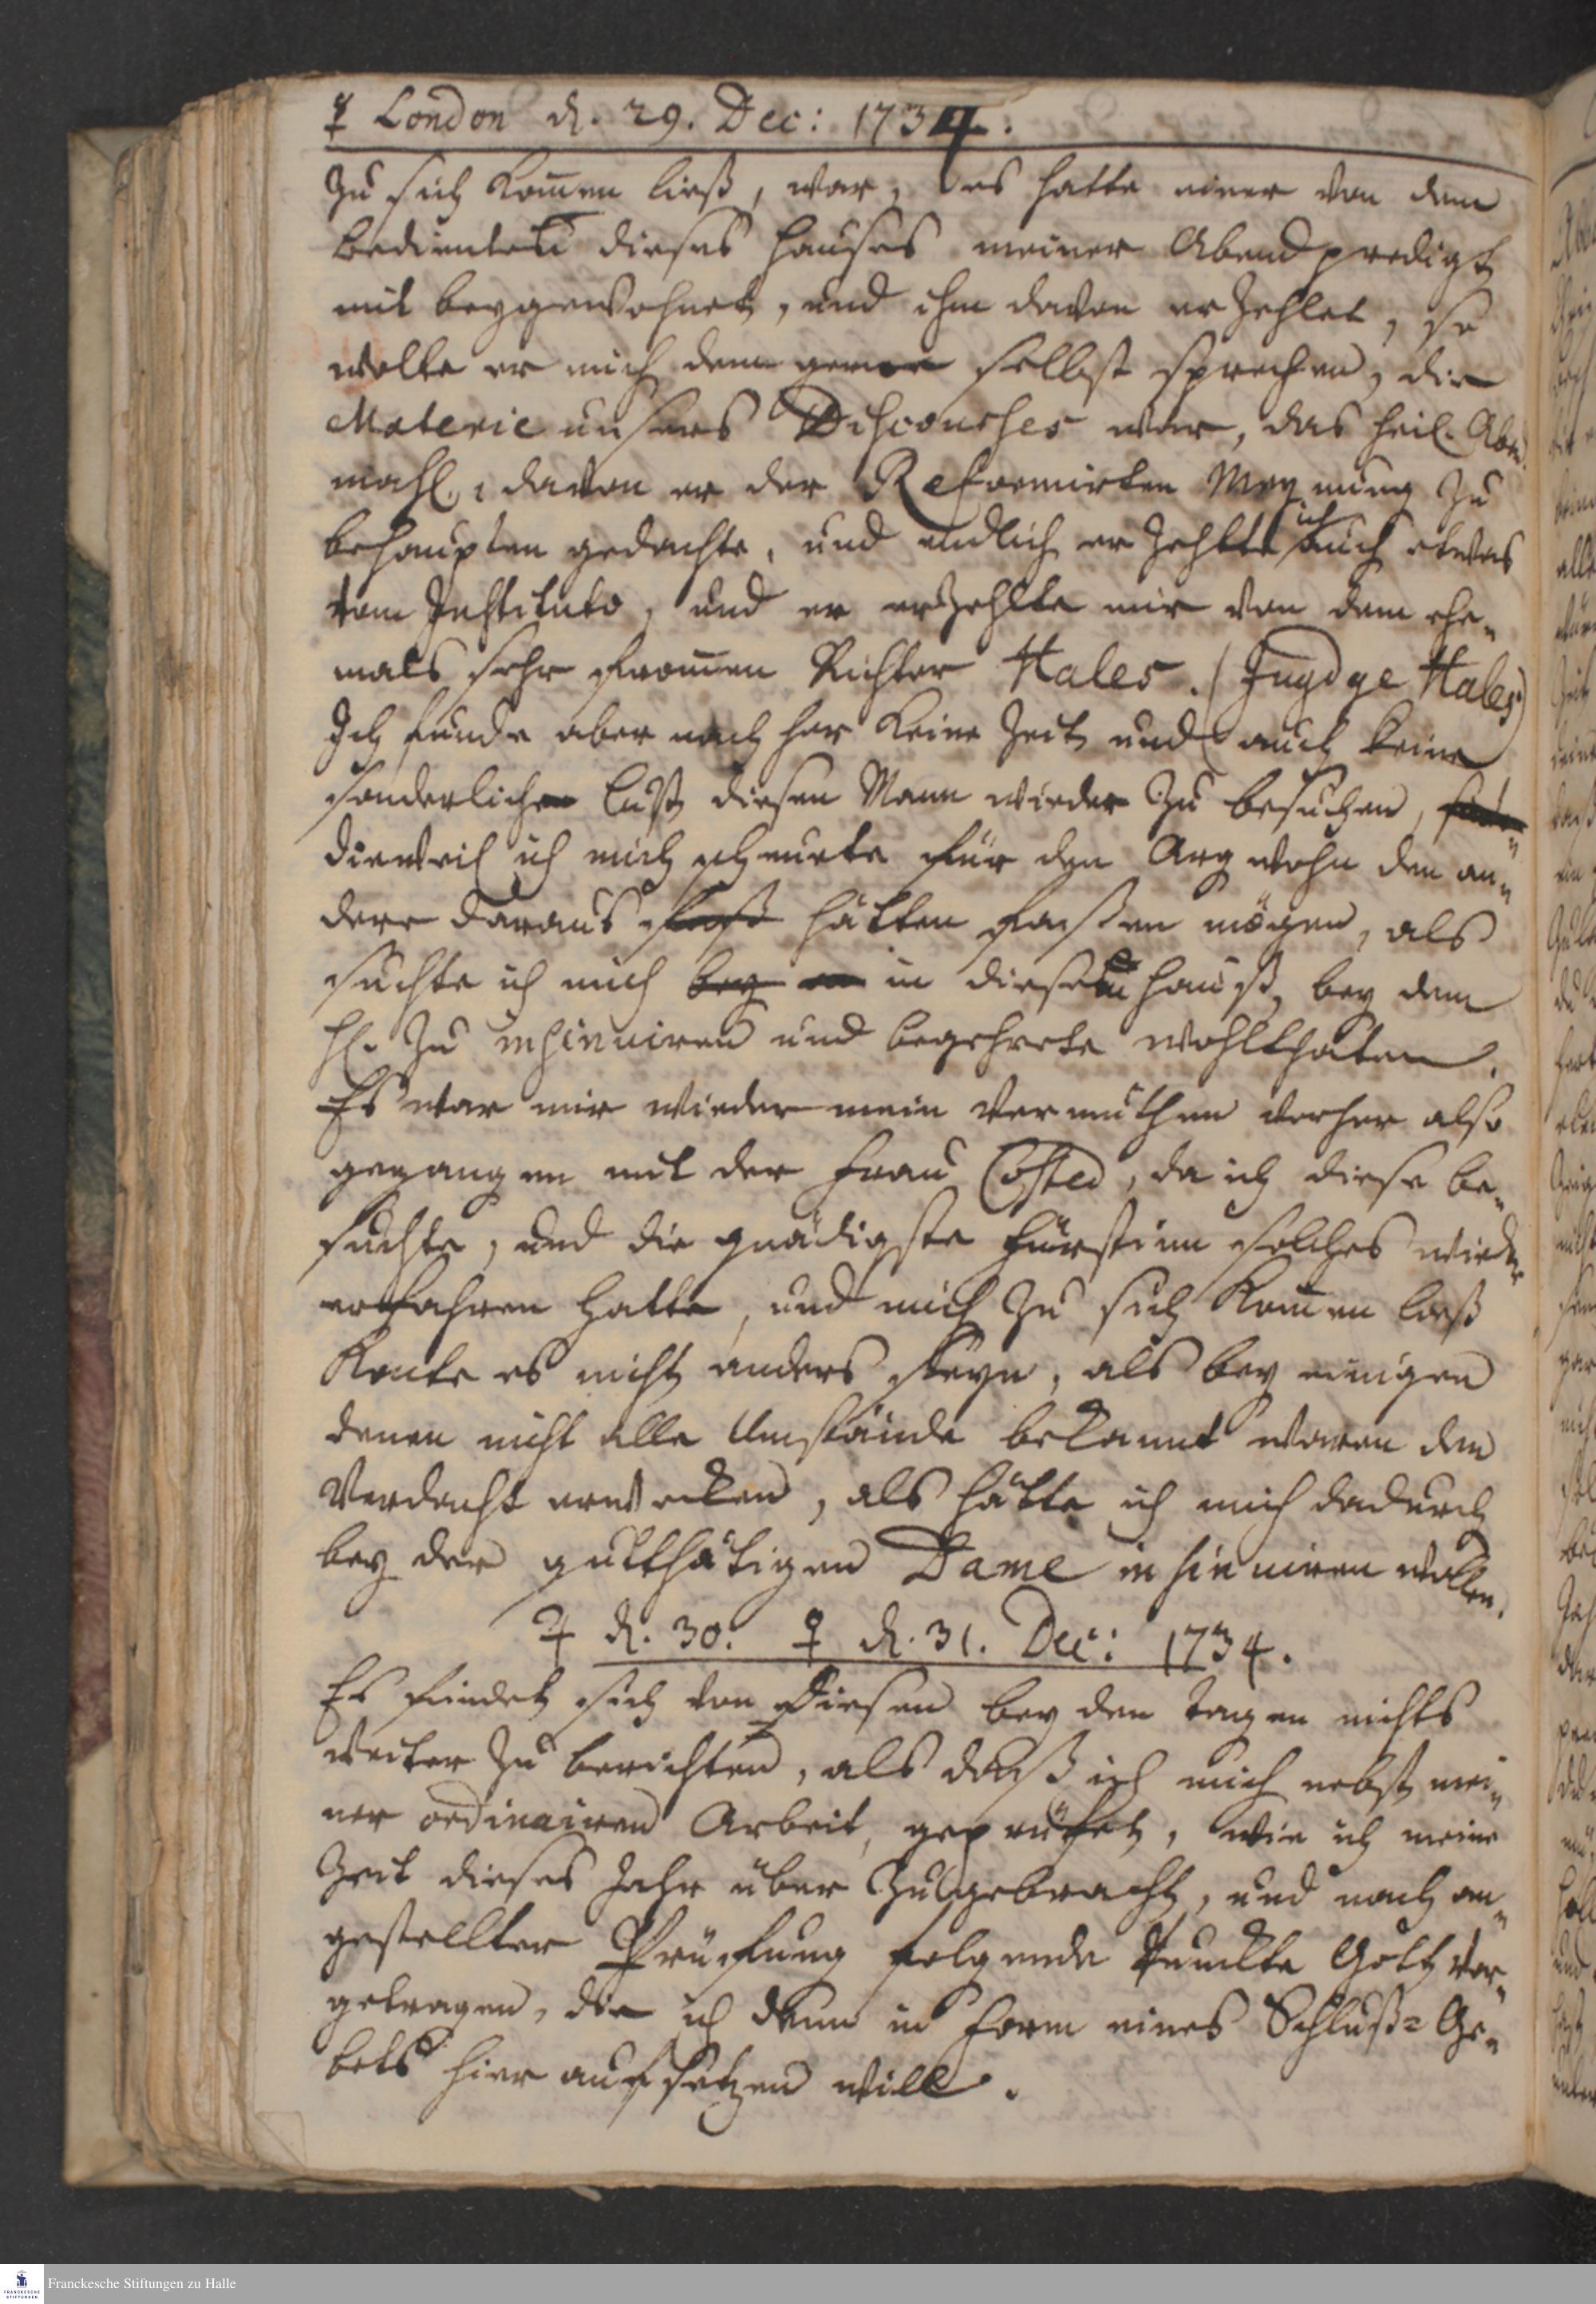 ☿ London d. 29. Dec: 1734.
zu sich kom̄en ließ, war, es hatte einer von dem
bedienten dieses Hauses meiner Abendpredigt
mit beygewohnet, und ihm davon erzehlet, so
wolte er mich denn gerne selbst sprechen, die
Materie unsers Discourses war, das heil. Abend
mahl, davon er der Reformirten Meynung zu
behaupten gedachte, und endlich erzehlte ich auch etwas
vom Instituto, und er erzehlte mir von dem ehe-
mals sehr from̄en Richter Hales. (Jugdge Hales)
Ich funde aber nach her keine Zeit und auch keine
sonderliche Lust diesen Mann wieder zu besuchen,
dieweil ich mich scheuete für den Argwohn den an-
dere daraus hätten faßen mögen, als
suchte ich mich bey in diesem Hauß, bey dem
H. zu insinuiren und begehrete wohlthaten.
Es war mir wieder mein Vermuthen vorher also
gegangen mit der Frau Costed, da ich diese be-
suchte, und die gnädigste Fürstinn solches wieder
erfahren hatte, und mich zu sich kom̄en ließ
konte es nicht anders seyn, als bey einigen
denen nicht alle Umstände bekannt waren den
Verdacht erwecken, als hätte ich mich dadurch
bey der gutthätigen Dame insinuiren wollen.
♃ d. 30. ♀ d. 31. Dec: 1734.
Es findet sich von diesen beyden Tagen nichts
weiter zu berichten, als daß ich mich nebst mei-
ner ordinairen Arbeit, geprüfet, wie ich meine
Zeit dieses Jahr über zugebracht, und nach an-
gestellter Prüfung folgende Puncte Gott vor-
getragen, die ich denn in Form eines Schluß-Ge-
bets hier aufsetzen will.
Franckesche Stiftungen zu Halle